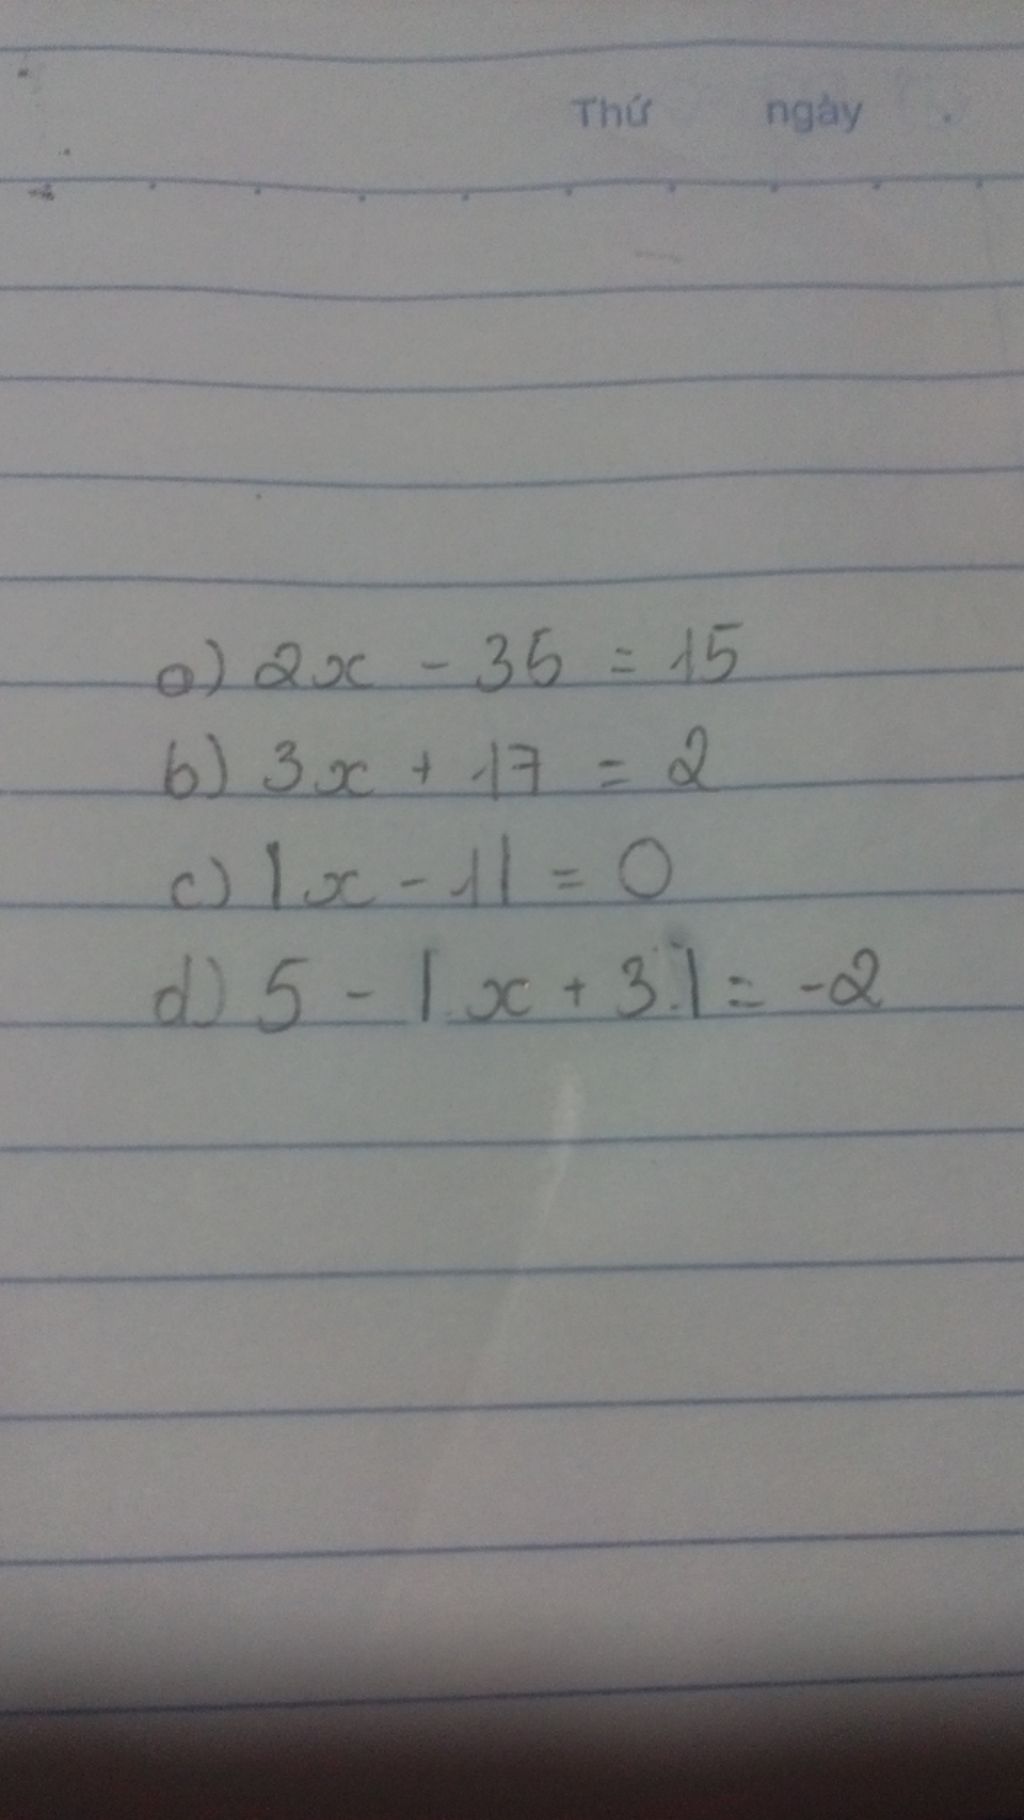 Thứ ngày
a) 2x - 35 = 15
b) 3x + 17 = 2
c) |x - 1| = 0
d) 5 - |x + 3| = -2